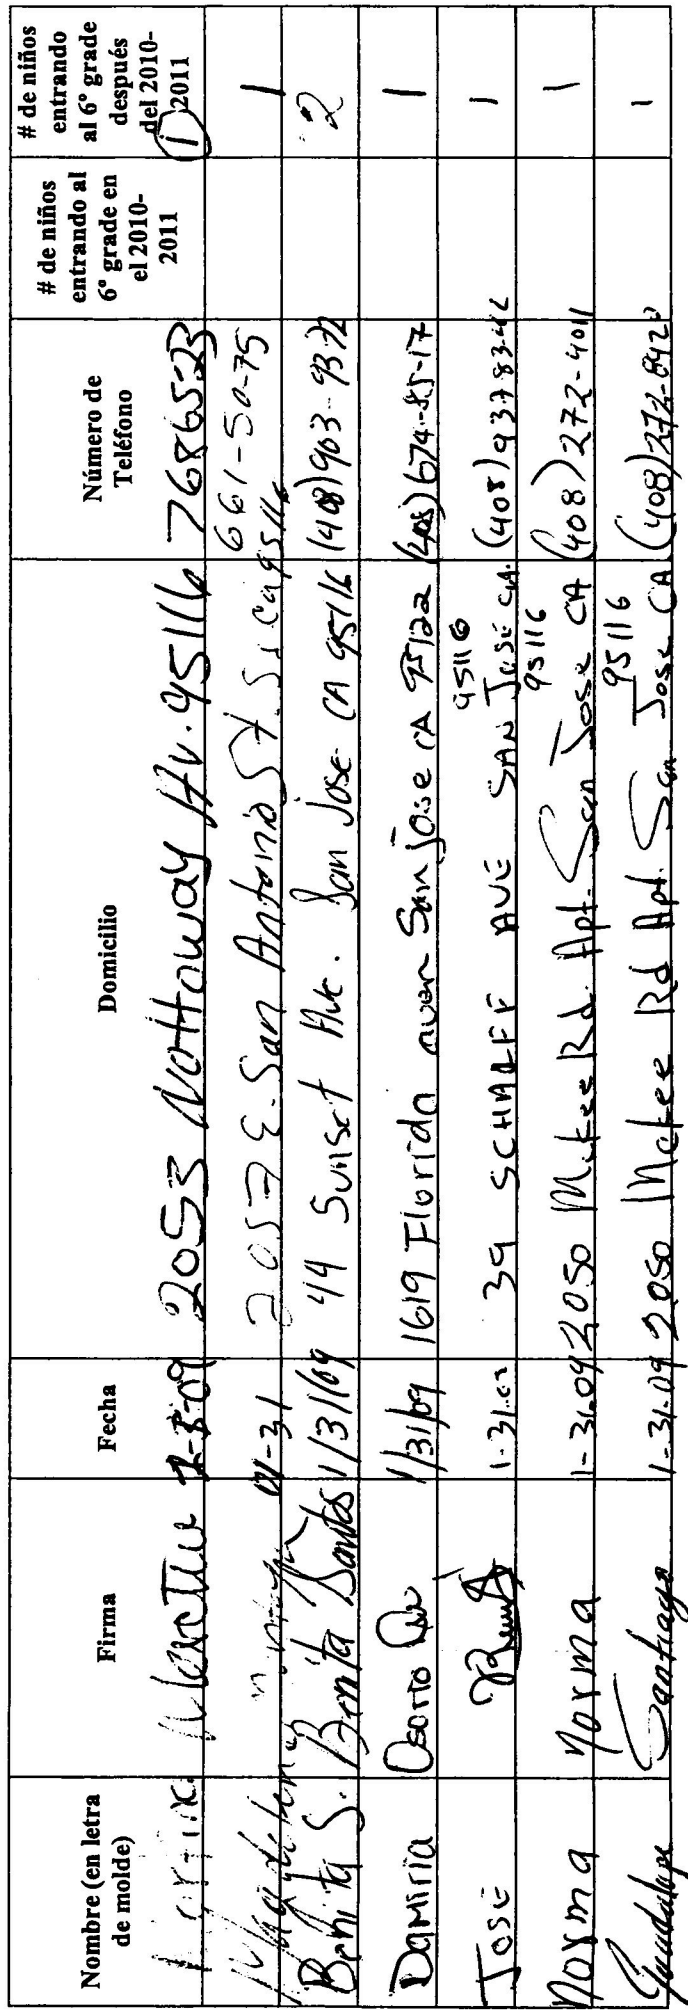 Nombre (en letra de molde) Firma Fecha Domicilio Número de Teléfono # de niños entrando al 6° grade en el 2010-2011 # de niños entrando al 6° grade después del 2010-2011
2053 Nottoway Av. 95116 7686523 1
01-31 2057 E. San Antonio St. S.J. Ca 95116 661-50-75 1
Bonita S. Bonita Santos 1/31/09 44 Sunset Ave. San Jose CA 95116 (408) 963-9372 2
Damiria Osorio 1/31/09 1619 Florida aven San jose CA 95122 (408) 674-85-17 1
José 39 SCHARFF AVE SAN José CA. 95116 (408) 1
Norma Norma 1-31-09 2050 Mckee Rd. Apt. San Jose CA 95116 (408) 272-4011 1
Guadalupe Santiago 1-31-09 2050 Mckee Rd Apt. San Jose CA 95116 (408) 272-0920 1